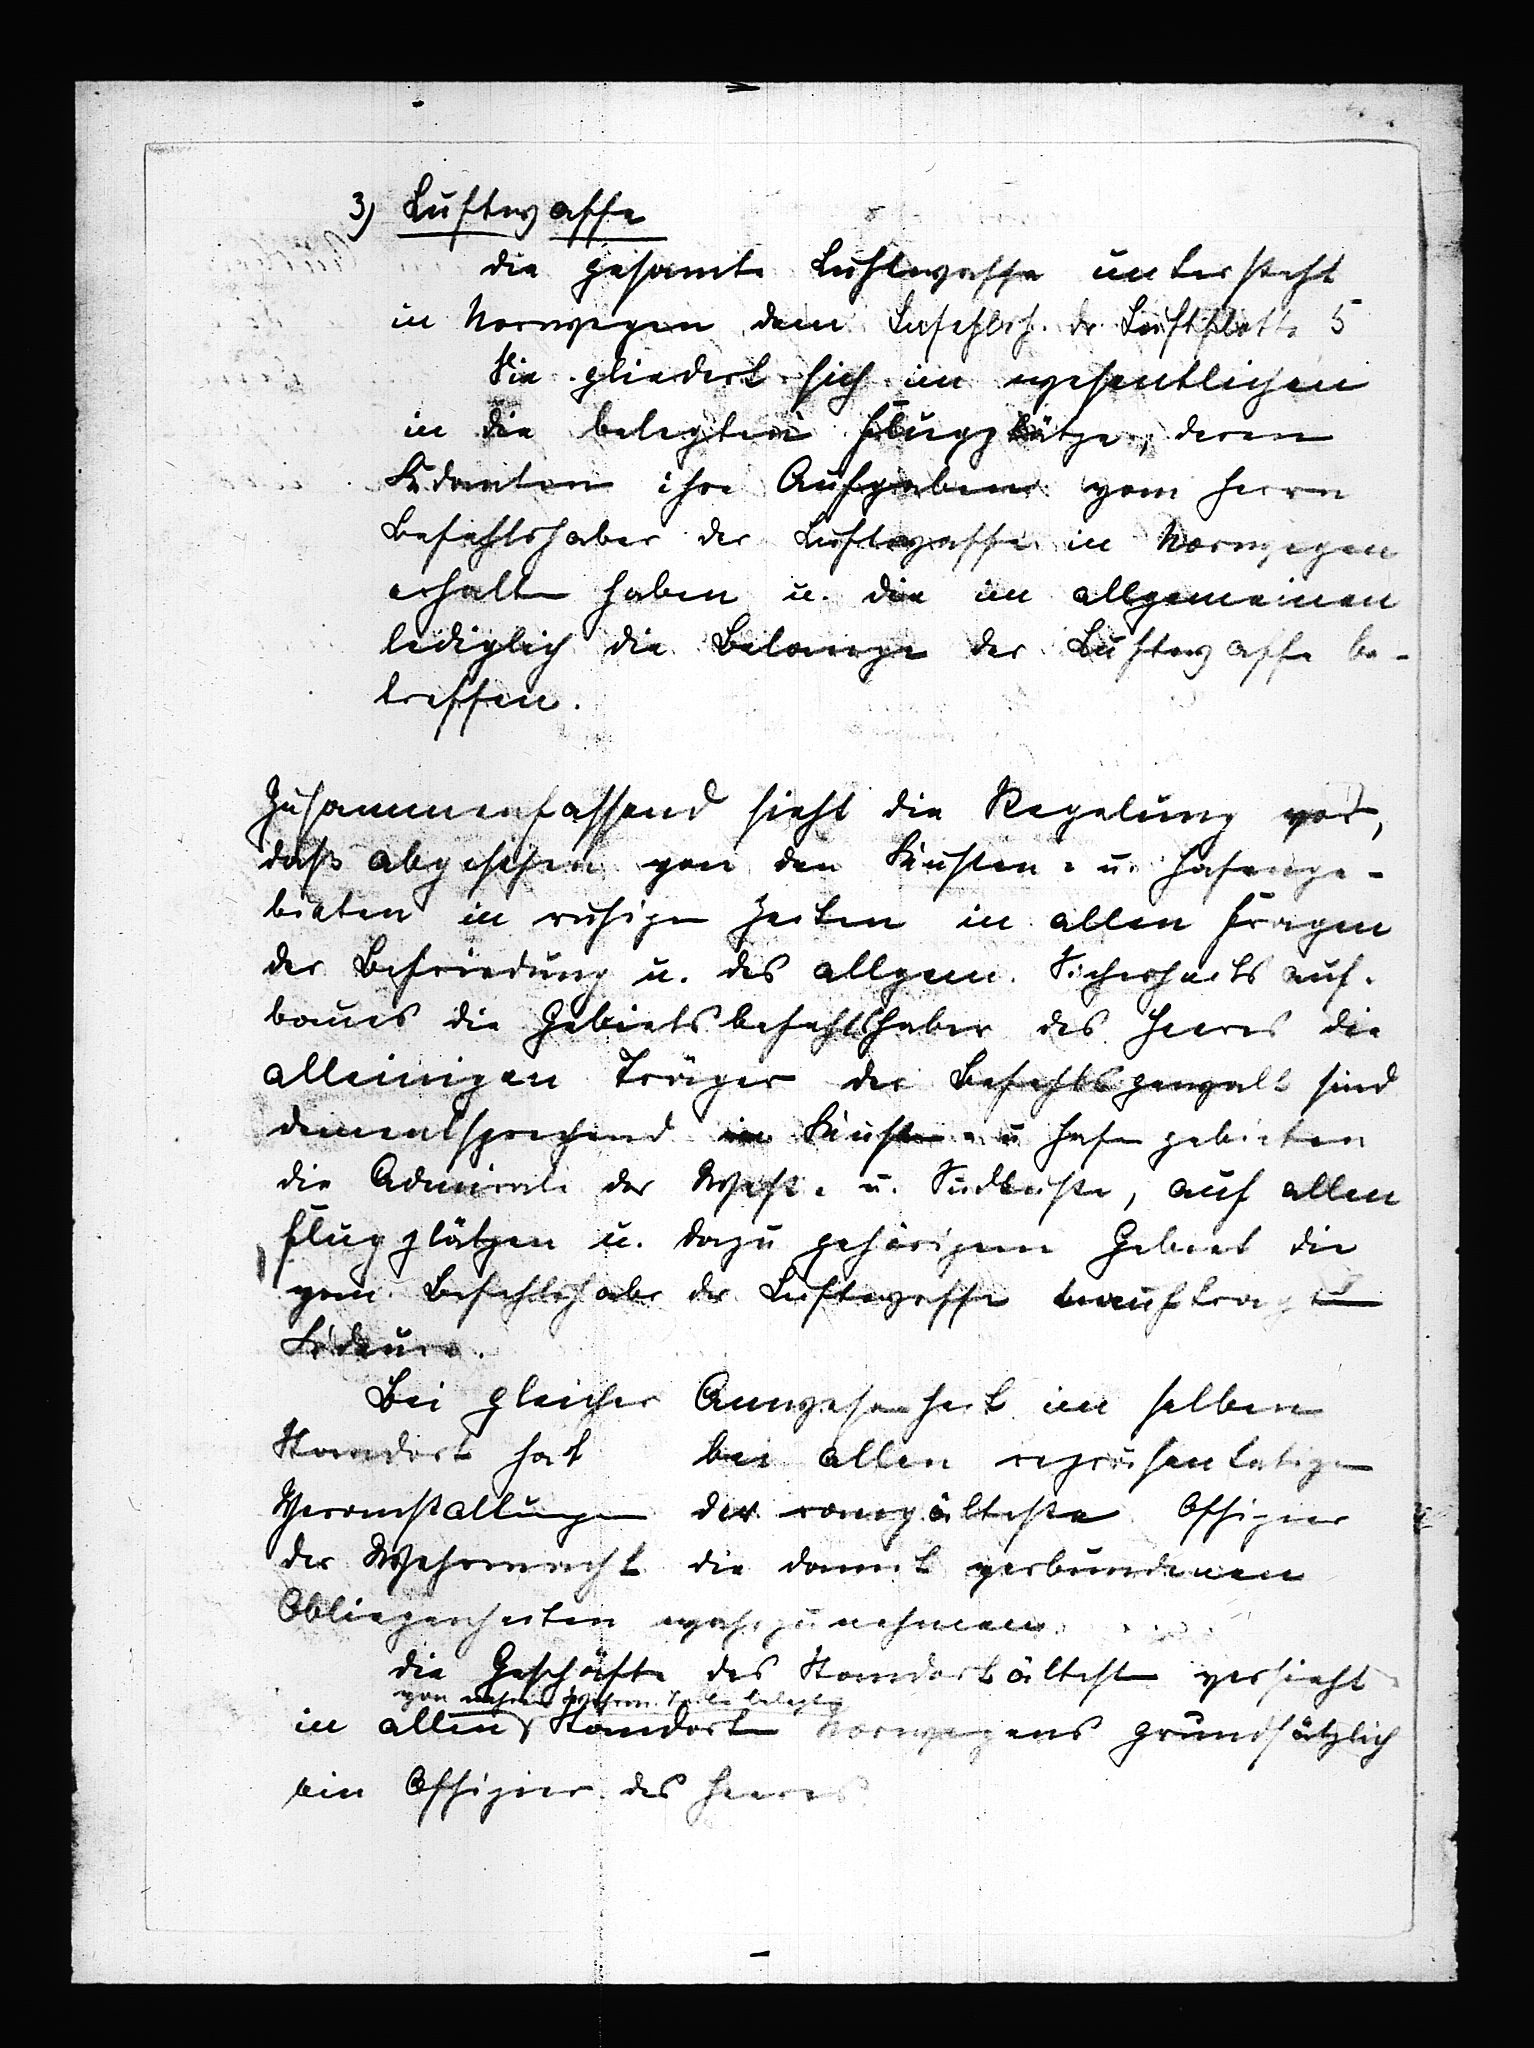 3) Luftwaffe
die gesamte Luftwaffe untersteht
in Norwegen dem Befehlsh. der Luftflotte 5
Sie gliedert sich im wesentlichen
in die belegten Flugplätze, deren
Kdanten ihre Aufgaben vom Herrn
Befehlshaber der Luftwaffe in Norwegen
erhalten haben u. die im allgemeinen
lediglich die Belange der Luftwaffe be-
treffen.
Zusammenfassend sieht die Regelung vor,
daß abgesehen von den Küsten- u. Hafenge-
bieten in ruhigen Zeiten in allen Fragen
der Befriedung u. des allgem. Sicherheits auf-
baues die Gebietsbefehlshaber des Heeres die
alleinigen Träger der Befehlsgewalt sind
dementsprechend in Küsten- u Hafengebieten
die Admirale der West- u. Südküste, auf allen
Flugplätzen u. dazu gehörigem Gebiet die
vom Befehlshaber der Luftwaffe beauftragten
Kdeure.
Bei gleicher Anwesenheit im selben
Standort hat bei allen repräsentativen
Veranstaltungen der rangälteste Offizier
der Wehrmacht die damit verbundenen
Obliegenheiten wahrzunehmen.
die Geschäfte des Standortältesten versieht
von mehr Wehrm. Teile belegten
in allen Standorten Norwegens grundsätzlich
ein Offizier des Heeres